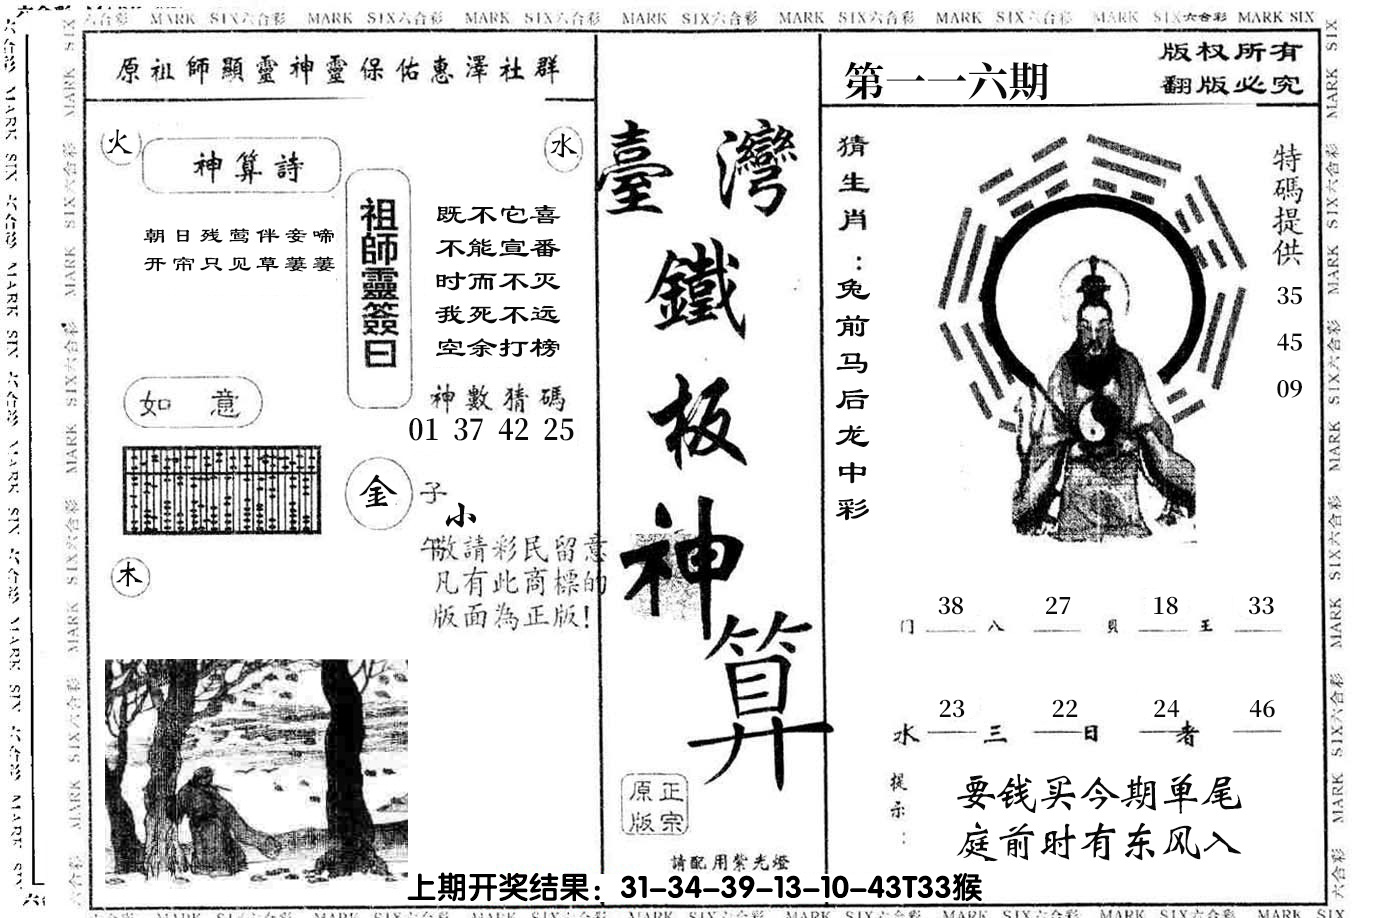 原祖師顯靈神靈保佑惠澤社群
火
水
神算詩
朝日残莺伴妾啼
开帘只见草萋萋
祖師靈簽曰
既不它喜
不能宣番
时而不灭
我死不远
空余打榜
如 意
神數猜碼
01 37 42 25
金
子
小
午
敬請彩民留意
凡有此商標的
版面為正版!
木
臺灣
鐵
板
神
算
正宗
原版
請配用紫光燈
第一一六期
版权所有
翻版必究
猜生肖:兔前马后龙中彩
特碼提供
35
45
09
38 27 18 33
门 八 贝 王
23 22 24 46
水 三 日 者
提示:
要钱买今期单尾
庭前时有东风入
上期开奖结果：31-34-39-13-10-43T33猴
MARK SIX六合彩 MARK SIX六合彩 MARK SIX六合彩 MARK SIX六合彩 MARK SIX六合彩 MARK SIX六合彩 MARK SIX六合彩 MARK SIX